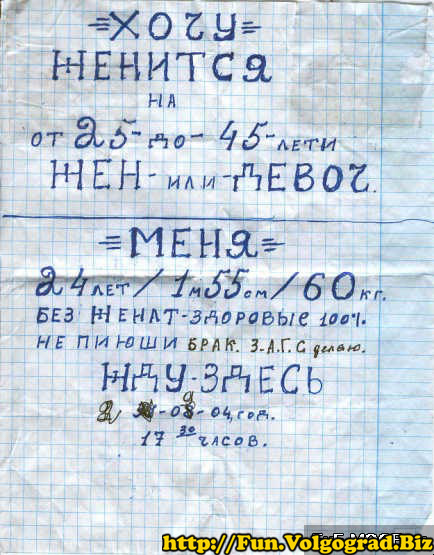 =ХОЧУ=
ЖЕНИТСЯ
НА
ОТ 25-ДО-45-ЛЕТИ
ЖЕН-ИЛИ-ДЕВОЧ.
=МЕНЯ=
24 ЛЕТ/1м55см/60кг.
БЕЗ ЖЕНАТ-ЗДОРОВЫЕ 100%.
НЕ ПИЮШИ БРАК. З.А.Г.С делаю.
ЖДУ-ЗДЕСЬ
04,год.
17 30 ЧАСОВ.
http://Fun.Volgograd.Biz